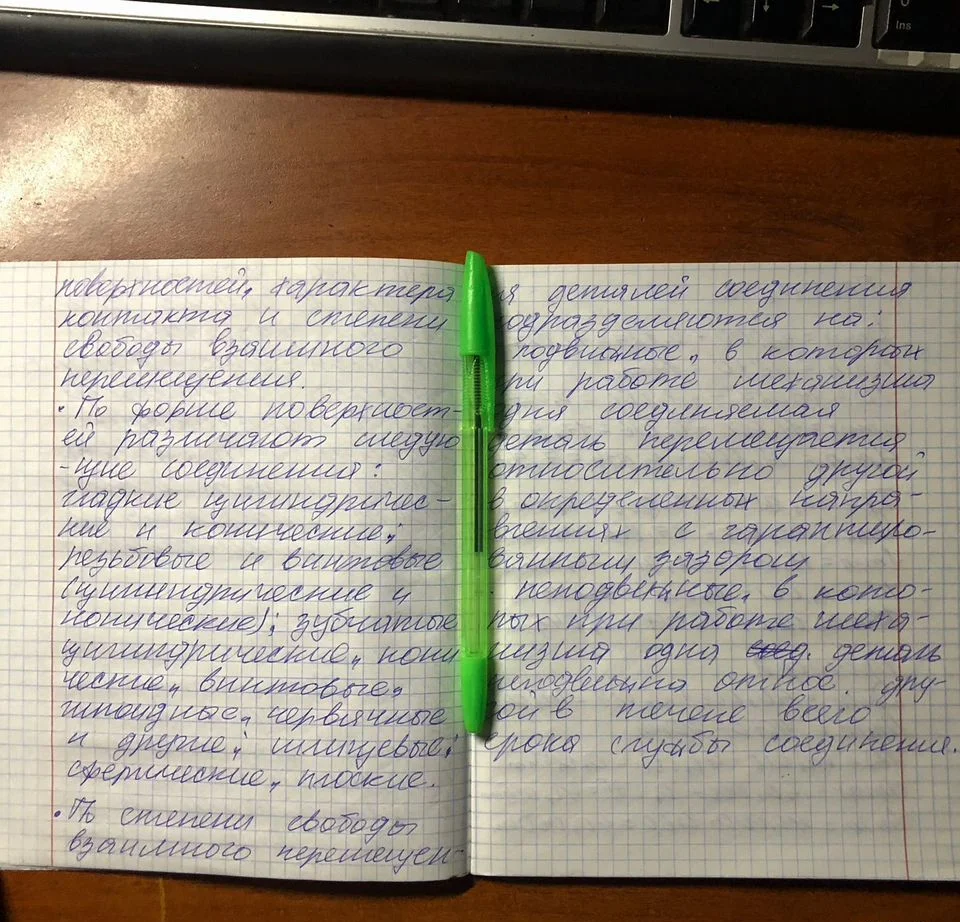 поверхностей, характера
контакта и степени
свободы взаимного
перемещения.
• По форме поверхност-
ей различают следую
-щие соединения:
гладкие цилиндричес-
кие и конические;
резьбовые и винтовые
(цилиндрические и
конические); зубчатые
цилиндрические, кони
ческие, винтовые,
гипоидные, червячные
и другие; шлицевые;
сферические, плоские.
• По степени свободы
взаимного перемещен-
ия деталей соединения
одразделяются на:
подвижные, в которых
при работе механизма
одна соединяемая
деталь перемещается
относительно другой
в определенных напра-
влениях с гарантиро-
ванным зазором
- неподвижные, в кото-
рых при работе меха-
низма одна деталь
неподвижна относ. дру-
гой в течене всего
срока службы соединения.
Ins